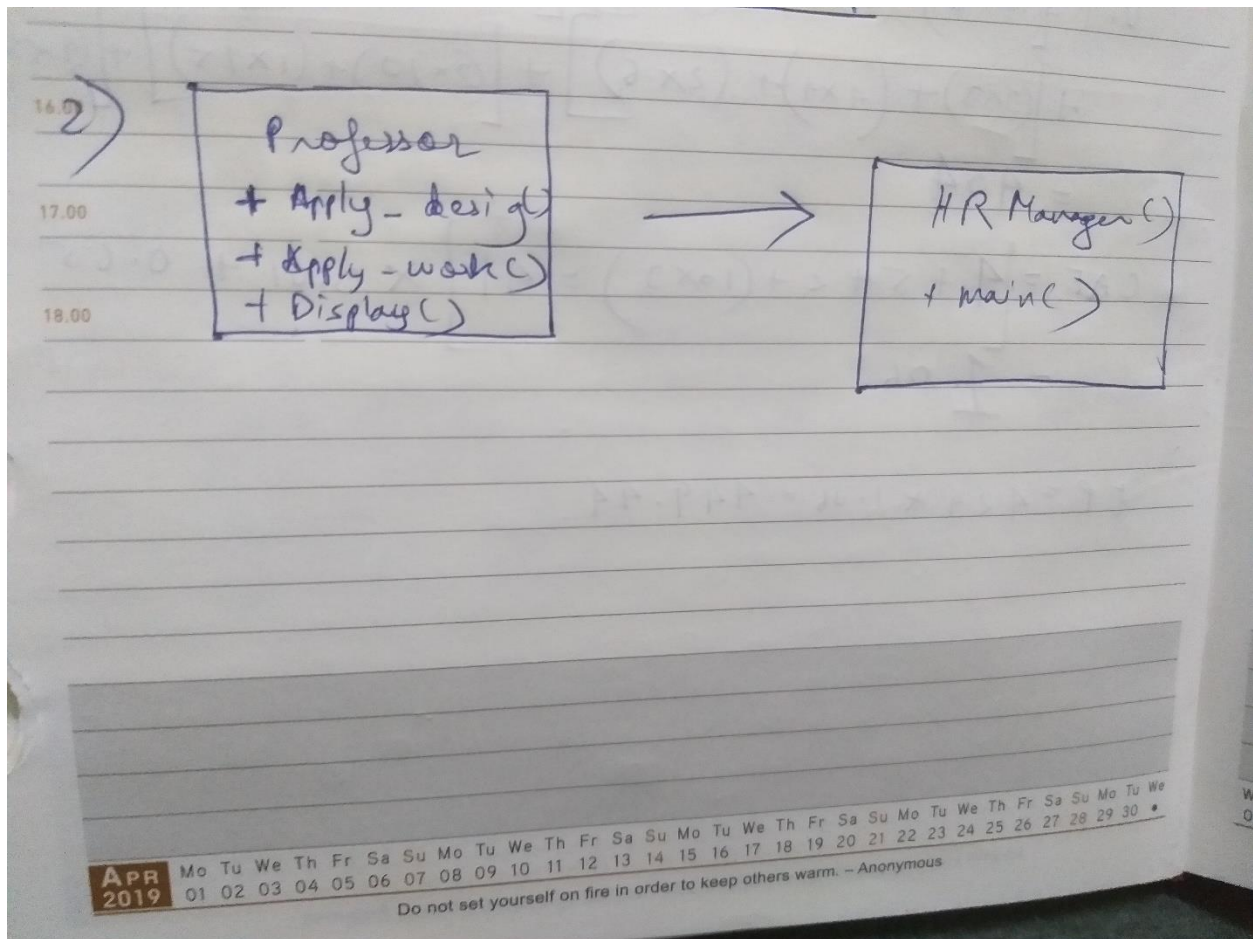 2)
Professor
+ Apply_desig()
+ Apply-work()
+ Display()
HR Manager()
+ main()
16.00
17.00
18.00
APR 2019
Mo Tu We Th Fr Sa Su Mo Tu We Th Fr Sa Su Mo Tu We Th Fr Sa Su Mo Tu We Th Fr Sa Su Mo Tu We
01 02 03 04 05 06 07 08 09 10 11 12 13 14 15 16 17 18 19 20 21 22 23 24 25 26 27 28 29 30 •
Do not set yourself on fire in order to keep others warm. – Anonymous